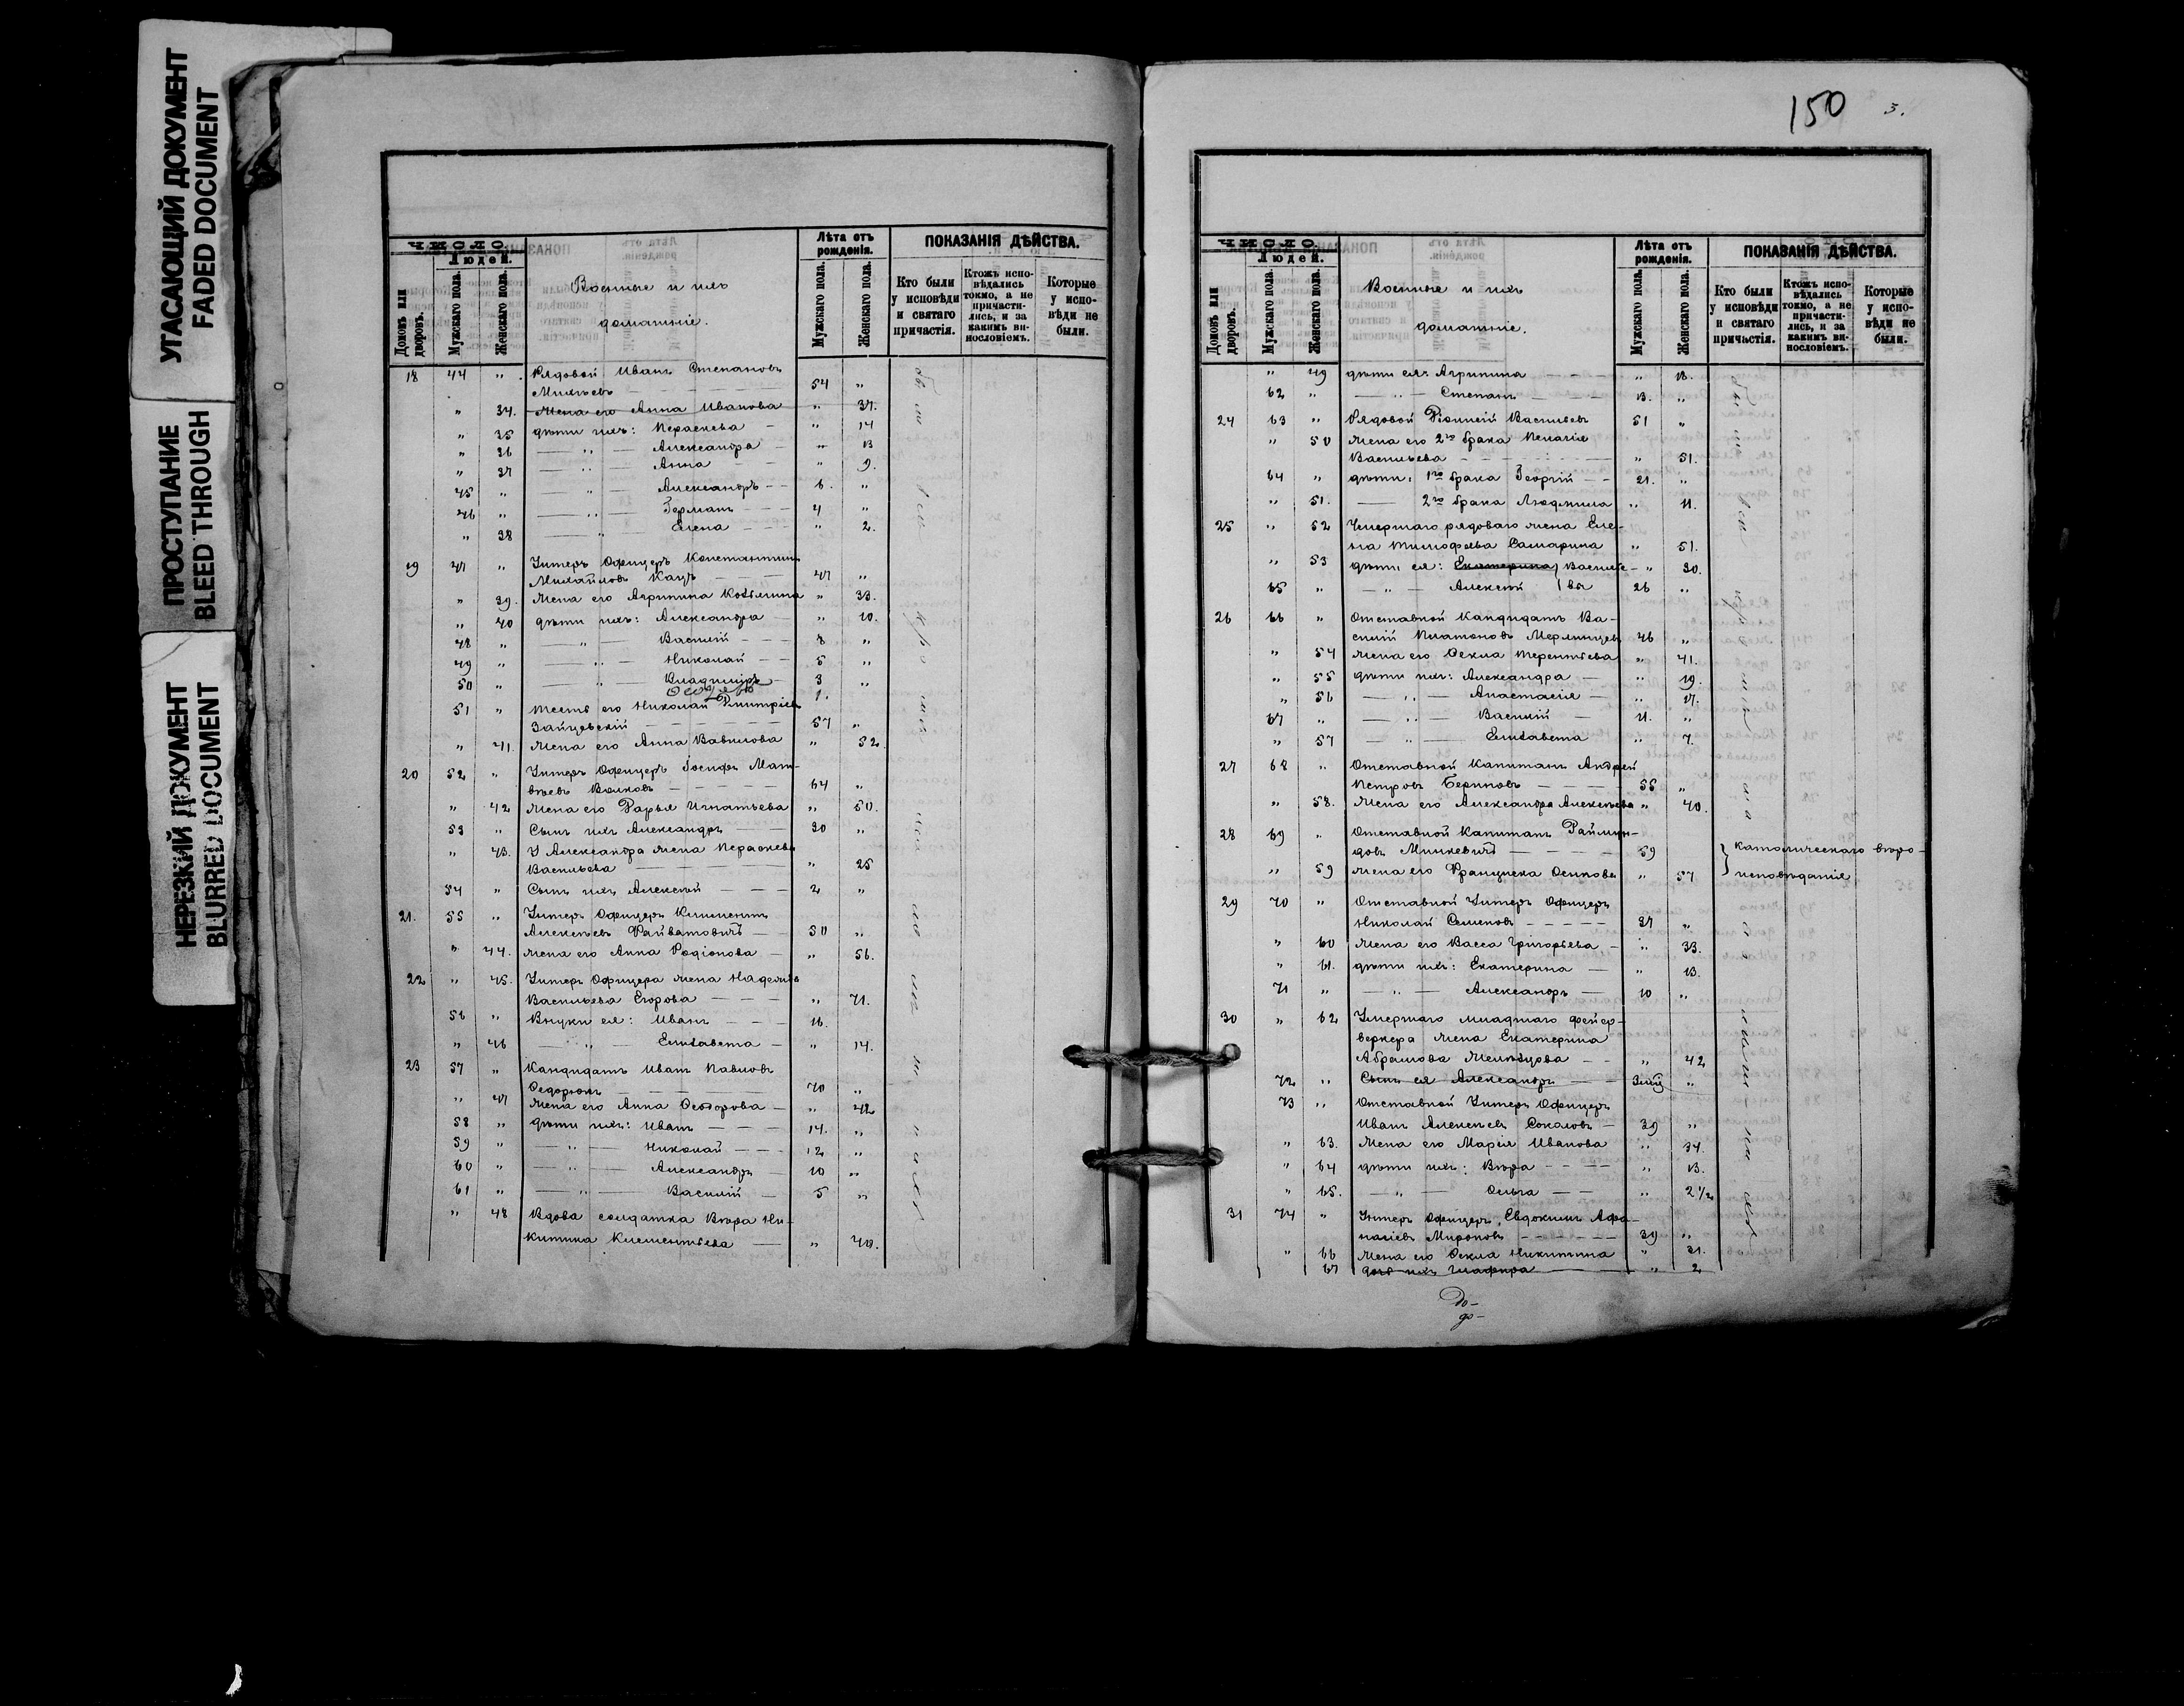 УГАСАЮЩИЙ ДОКУМЕНТ
FADED DOCUMENT
ПРОСТУПАНИЕ
BLEED THROUGH
НЕРЕЗКИЙ ДОКУМЕНТ
BLURRED DOCUMENT
ЧИСЛО.
Людей.
Домовъ или дворовъ.
Мужскаго пола.
Женскаго пола.
Военные и ихъ
домашніе.
Лѣта отъ рожденія.
Мужскаго пола.
Женскаго пола.
ПОКАЗАНІЯ ДѢЙСТВА.
Кто были у исповѣди и святаго причастія.
Ктожъ исповѣдались токмо, а не причастились, и за какимъ винословіемъ.
Которые у исповѣди не были.
18 44 „ Рядовой Иванъ Степановъ
Михѣевъ 54 „
„ 34. Жена его Анна Иванова „ 37.
„ 35 дѣти ихъ: Параскева „ 14
„ 36 — „ — Александра „ 13
„ 37 — „ — Анна „ 9.
45 „ — „ — Александръ 6. „
46 „ — „ — Германъ 4 „
„ 38 — „ — Елена „ 2.
19 47 „ Унтеръ Офицеръ Константинъ
Михайловъ Кацъ 47 „
„ 39. Жена его Агрипина Козьмина „ 33.
„ 40 дѣти ихъ: Александра „ 10.
48 „ — „ — Василій 8 „
49 „ — „ — Николай 5 „
50 „ — „ — Владиміръ 3 „
1.
51 „ Тесть его Николай Дмитріевъ
Зайцевскій 57 „
„ 41. Жена его Анна Вавилова „ 52.
20 52 „ Унтеръ Офицеръ Іосифъ Мат-
вѣевъ Волковъ 64 „
„ 42 Жена его Дарья Игнатьева „ 50.
53 „ Сынъ ихъ Александръ 30 „
„ 43. У Александра жена Параскева
Васильева „ 25
54 „ Сынъ ихъ Алексѣй 2 „
21. 55 „ Унтеръ Офицеръ Климентъ
Алексѣевъ 50 „
„ 44. Жена его Анна Родіонова „ 56.
22 „ 45. Унтеръ Офицера жена Надежда
Васильева Егорова „ 71.
56 „ Внуки ея: Иванъ 16. „
„ 46 — „ — Елизавета „ 14.
23 57 „ Кандидатъ Иванъ Павловъ
Федорюкъ 70 „
„ 47 Жена его Анна Феодорова „ 42
58 „ дѣти ихъ: Иванъ 14. „
59 „ — „ — Николай 12 „
60 „ — „ — Александръ 10 „
61 „ — „ — Василій 5 „
„ 48 Вдова солдатка Вѣра Ни-
китина Клементьева „ 40.
150 3.
ЧИСЛО.
Людей.
Домовъ или дворовъ.
Мужскаго пола.
Женскаго пола.
Военные и ихъ
домашніе.
Лѣта отъ рожденія.
Мужскаго пола.
Женскаго пола.
ПОКАЗАНІЯ ДѢЙСТВА.
Кто были у исповѣди и святаго причастія.
Ктожъ исповѣдались токмо, а не причастились, и за какимъ винословіемъ.
Которые у исповѣди не были.
„ 49 дѣти ея: Агрипина „ 18.
62 „ — „ — Степанъ 13. „
24 63 „ Рядовой Діонисій Васильевъ 51 „
„ 50 Жена его 2го брака Пелагія
Васильева „ 51.
64 „ дѣти: 1го брака Георгій 21. „
„ 51. — 2го брака Людмила „ 11.
25 „ 52 Умершаго рядоваго жена Еле-
на Тимофеева Самарина „ 51.
„ 53 дѣти ея: Екатерина } Василье- „ 30.
65 „ — „ — Алексѣй } вы 26 „
26 66 „ Отставной Кандидатъ Ва-
силій Платоновъ 46 „
„ 54 Жена его Фекла Терентьева „ 41.
„ 55 дѣти ихъ: Александра „ 19.
„ 56 — „ — Анастасія „ 17.
67 „ — „ — Василій 11. „
„ 57 — „ — Елизавета „ 7.
27 68 „ Отставной Капитанъ Андрей
Петровъ 55 „
„ 58. Жена его Александра Алексѣева „ 40.
28 69 „ Отставной Капитанъ Раймун-
довъ Минкевичъ 59
„ 59 Жена его Франциска Осипова „ 57
} Католическаго вѣро-
исповѣданія
29 70 „ Отставной Унтеръ Офицеръ
Николай Семеновъ 37 „
„ 60 Жена его Васса Григорьева „ 33.
„ 61. дѣти ихъ: Екатерина „ 13.
71 „ — „ — Александръ 10 „
30 „ 62 Умершаго младшаго фейер-
веркера жена Екатерина
Абрамова „ 42
72 „ Сынъ ея Александръ „
73 „ Отставной Унтеръ Офицеръ
Иванъ Алексѣевъ Соколовъ 39 „
„ 63. Жена его Марія Иванова „ 34.
„ 64 дѣти ихъ: Вѣра „ 13.
„ 65. — „ — Ольга „ 2 1/2
31 74 „ Унтеръ Офицеръ Евдокимъ Афа-
насіевъ Мироновъ 39 „
„ 66 Жена его Фекла Никитина „ 31.
67 дочь ихъ Глафира „ 2